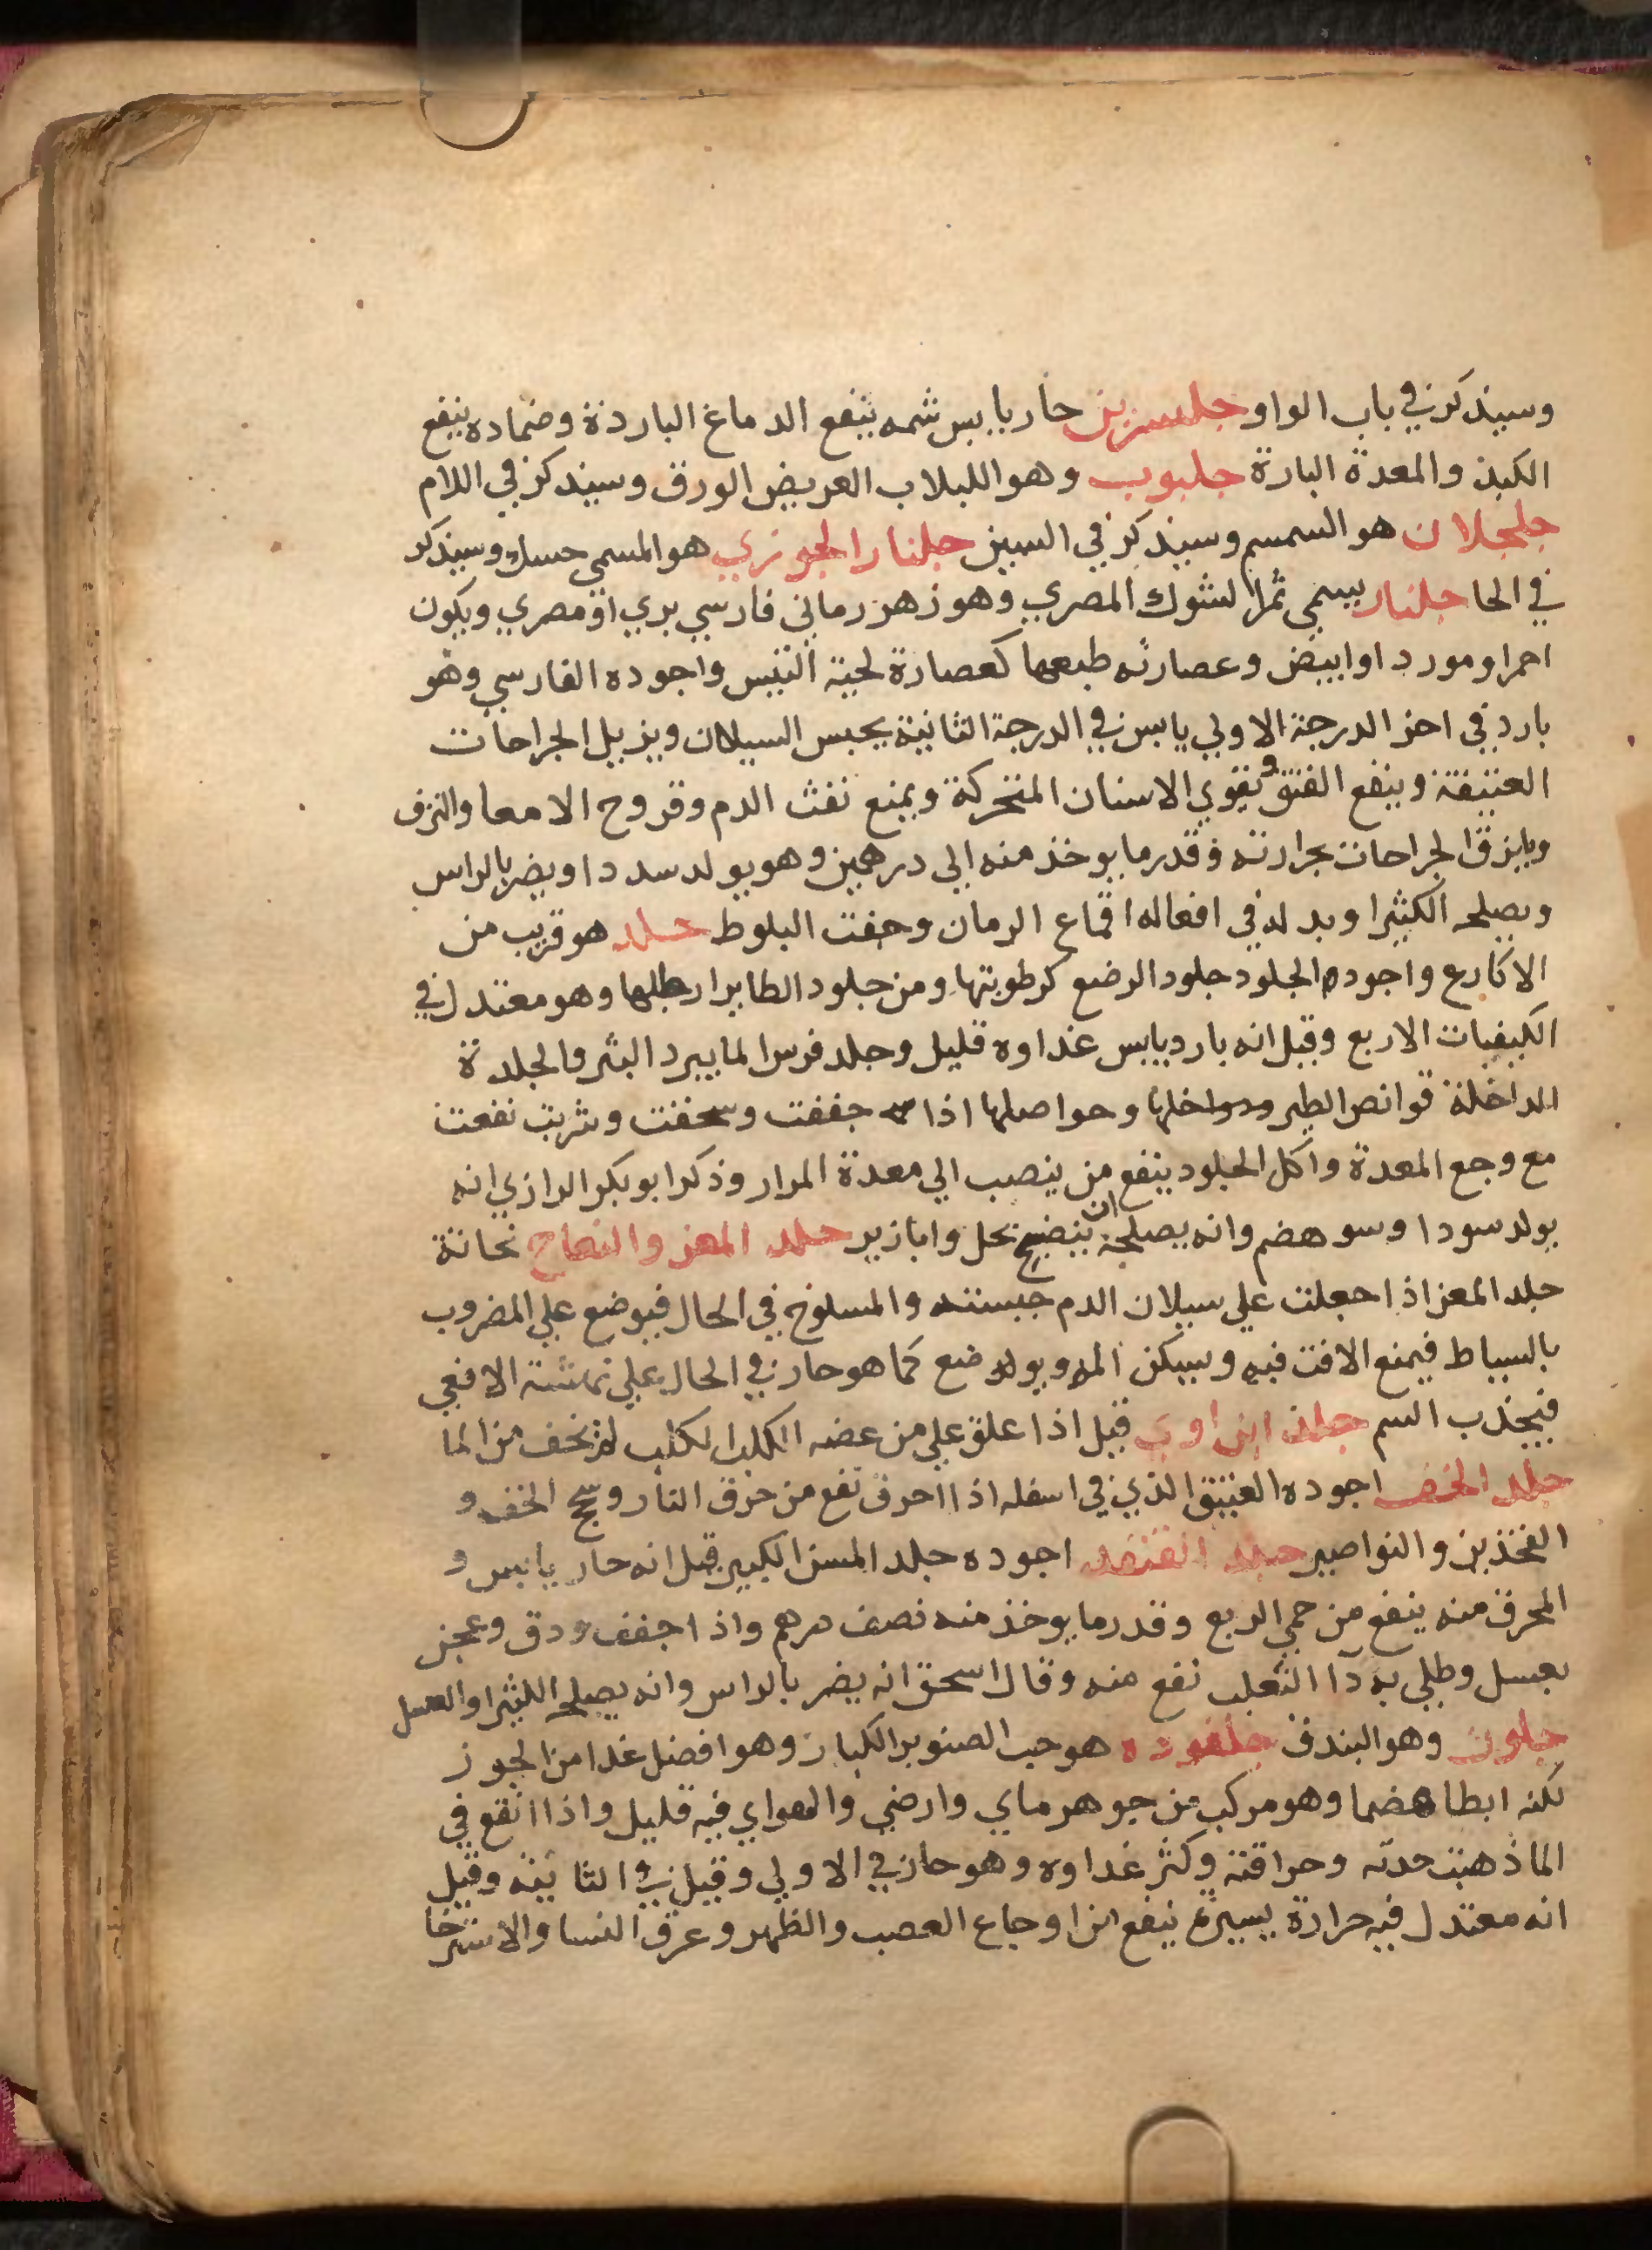 وسيذكر في باب الواو جلنسرين حار يابس شمه ينفع الدماغ الباردة وضماده ينفع
الكبد والمعدة البارة جلبوب وهو اللبلاب العريض الورق وسيذكر في اللام
جلجلان هو السمسم وسيذكر في السين جلنار الجوزي هو المسمى حسك وسيذكر
في الحا جلنار يسمى ثمر الشوك المصري وهو زهر رماني فارسي بري او مصري ويكون
احمر او مورد او ابيض وعصارته طبعها كعصارة لحية التيس واجوده الفارسي وهو
بارد في اخر الدرجة الاولي يابس في الدرجة الثانية يحبس السيلان ويزيل الجراحات
العتيقة وينفع الفتق ويقوي الاسنان المتحركة ويمنع نفث الدم وقروح الامعا والنزف
ويلزق الجراحات بحرارته وقدر ما يوخذ منه الي درهمين وهو يولد سددا ويضر بالراس
ويصلحه الكثيرا وبدله في افعاله اقماع الرمان وجفت البلوط جلد هو قريب من
الاكارع واجوده الجلود جلود الرضع كرطوبتها ومن جلود الطاير ارطبها وهو معتدل في
الكيفيات الاربع وقيل انه بارد يابس غداوه قليل وجلد فرس الما يبرد البثر والجلدة
الداخلة قوانص الطير ودواخلها وحواصلها اذا جففت وسحقت وشربت نفعت
مع وجع المعدة واكل الجلود ينفع من ينصب الي معدة المرار وذكر ابو بكر الرازي انه
يولد سودا وسو هضم وانه يصلحه ان ينضج بخل وابازير جلد المعز والنعاج نحاتة
جلد المعز اذا جعلت علي سيلان الدم حبسته والمسلوخ في الحال فيوضع علي المضروب
بالسياط فيمنع الافت فيه ويسكن المه ويوضع كما هو حار في الحال علي نهشة الافعي
فيجذب السم جلد ابن اوي قيل اذا علق علي من عضه الكلب الكلب لم يخف من الما
جلد الخف اجوده العتيق الذي في اسفله اذا احرق نفع من حرق النار وسحج الخف و
الفخذين والنواصير جلد القنفد اجوده جلد المسن الكبير قيل انه حار يابس و
المحرق منه ينفع من حمي الربع وقدر ما يوخذ منه نصف درهم واذا جفف ودق وعجن
بعسل وطلي به دآ الثعلب نفع منه وقال اسحق انه يضر بالراس وانه يصلحه الكثيرا والعسل
جلون وهو البندق جلغوده هو حب الصنوبر الكبار وهو افضل غدا من الجوز
لكنه ابطا هضما وهو مركب من جوهر ماي وارضي والهواي فيه قليل واذا انقع في
الما ذهبت حدته وحراقته وكثر غداوه وهو حار في الاولي وقيل في الثانية وقيل
انه معتدل فيه حرارة يسيرة ينفع من اوجاع العصب والظهر وعرق النسا والاسترخا